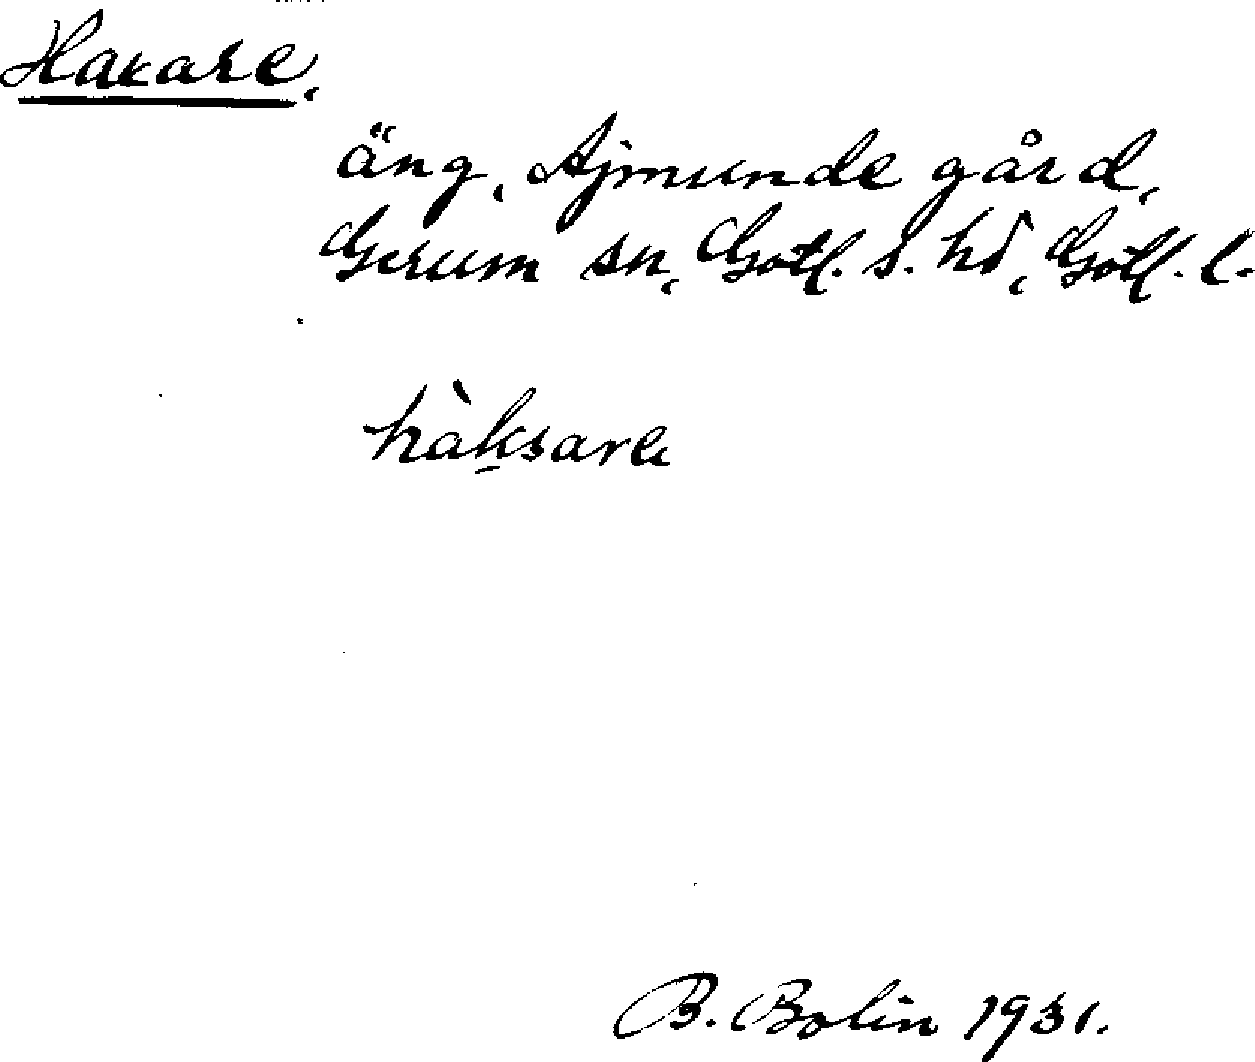 Hakare,
äng, Ajmunde gård,
Gerum sn, Gotl. s. hd, Gotl. l.
hàksare
B. Bolin 1931.